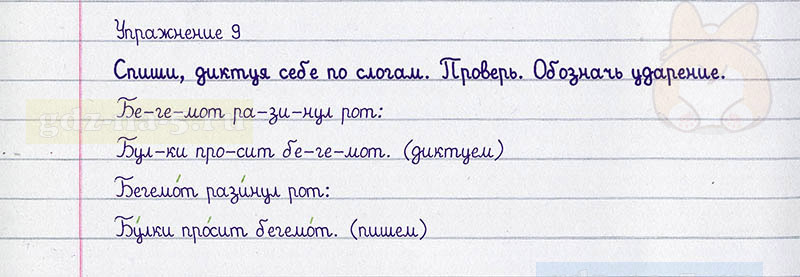 Упражнение 9
Спиши, диктуя себе по слогам. Проверь. Обозначь ударение.
Бе-ге-мот ра-зи-нул рот:
gdz-na-5.ru
Бул-ки про-сит бе-ге-мот. (диктуем)
Бегемо́т рази́нул рот:
Бу́лки про́сит бегемо́т. (пишем)